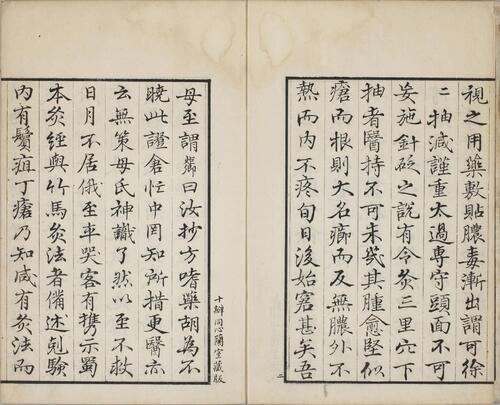 視之用藥敷貼膿毒漸出謂可徐
二抽減謹重太過專守頭面不可
妄施針砭之說有令灸三里穴下
抽者醫持不可未幾其腫愈堅似
瘡而根則大名癤而反無膿外不
熱而内不疼旬日後始窘甚矣吾
母至謂鄰曰汝抄方嗜藥胡為不
曉此證倉忙中罔知所措更醫亦
云無策母氏神識了然以至不救
日月不居俄至卒哭客有携示蜀
本灸經與竹馬灸法者備述剋驗
内有鬢疽丁瘡乃知咸有灸法而
十瓣同心蘭室藏版
二